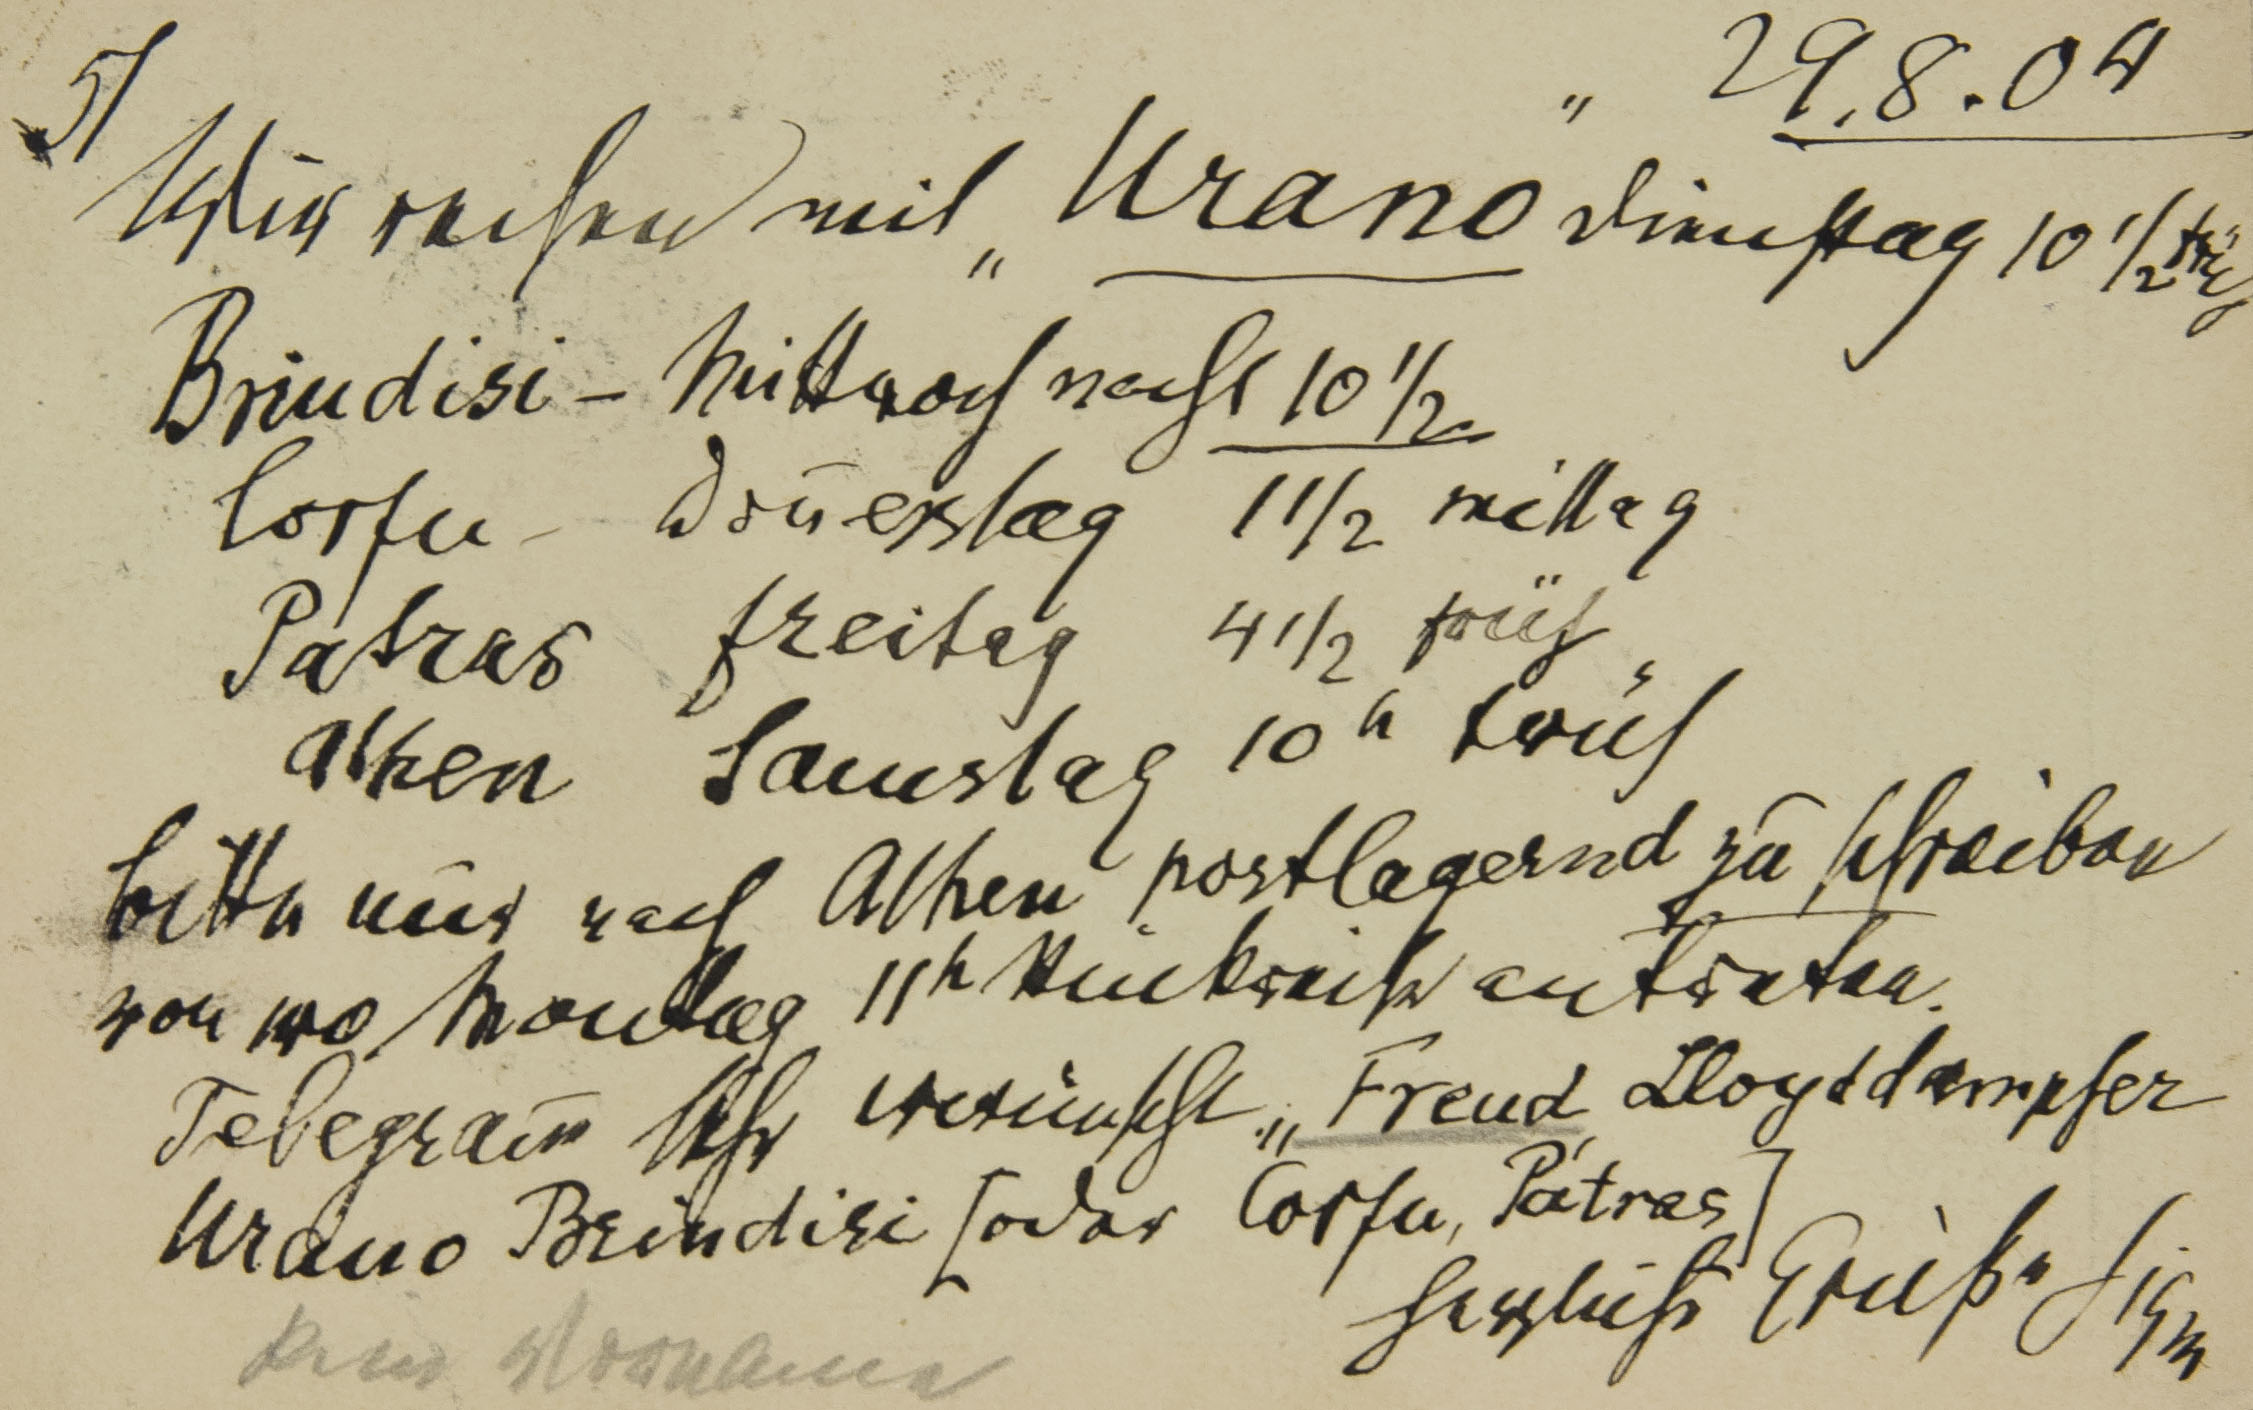 5/
29.8.04
Wir reisen mit „Urano" Dienstag 10 1/2 früh
Brindisi – Mittwoch nacht 10 1/2
Corfu – Don̄erstag 11/2 mittag
Patras freitag 4 1/2 früh
Athen Samstag 10h früh
bitte nur nach Athen postlagernd zu schreiben
von wo Montag 11h Rückreise antreten.
Telegram̄ sehr erwünscht „Freud Lloyddampfer
Urano Brindisi [oder Corfu, Patras]
herzlichst Grüße Sigm